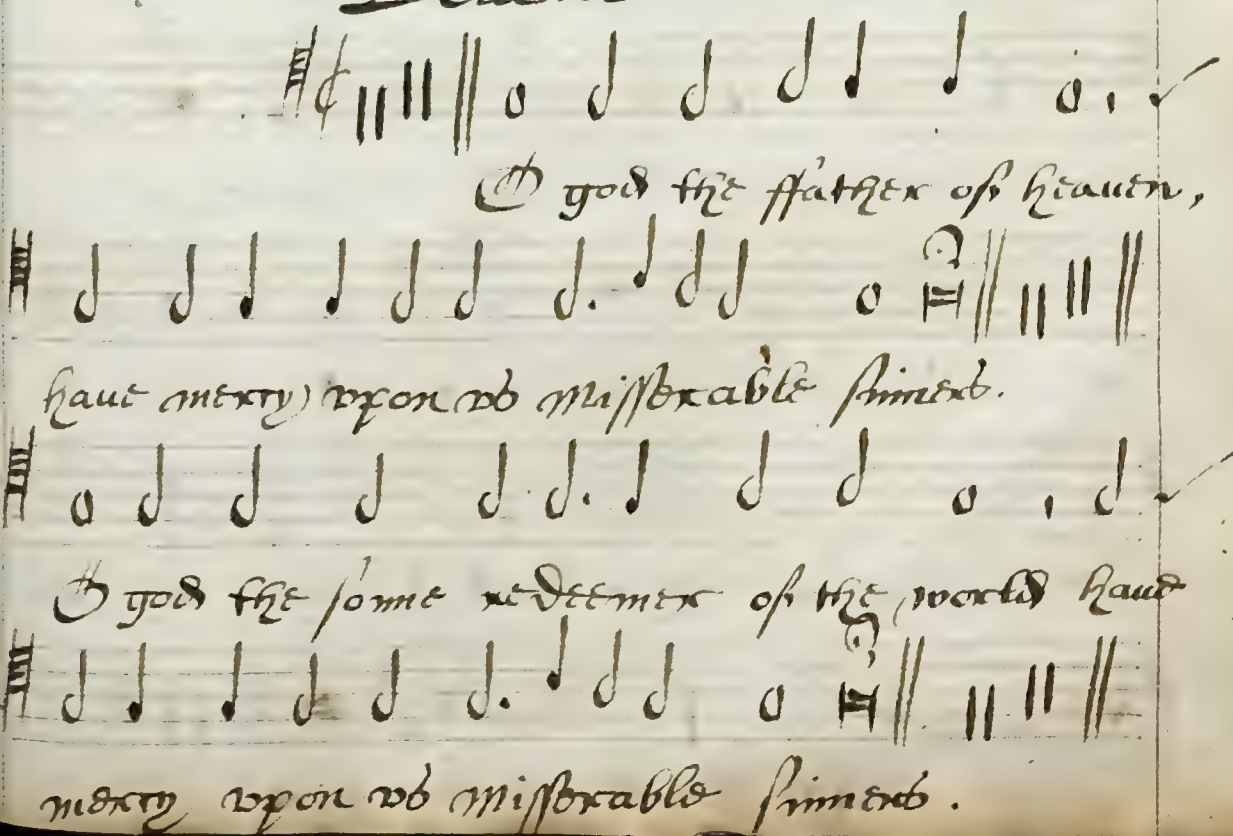 O god the ffather of heauen,
haue mercy vpon vs Misserable sinners.
O god the sonne redeemer of the world haue
mercy vpon vs Misserable sinners.